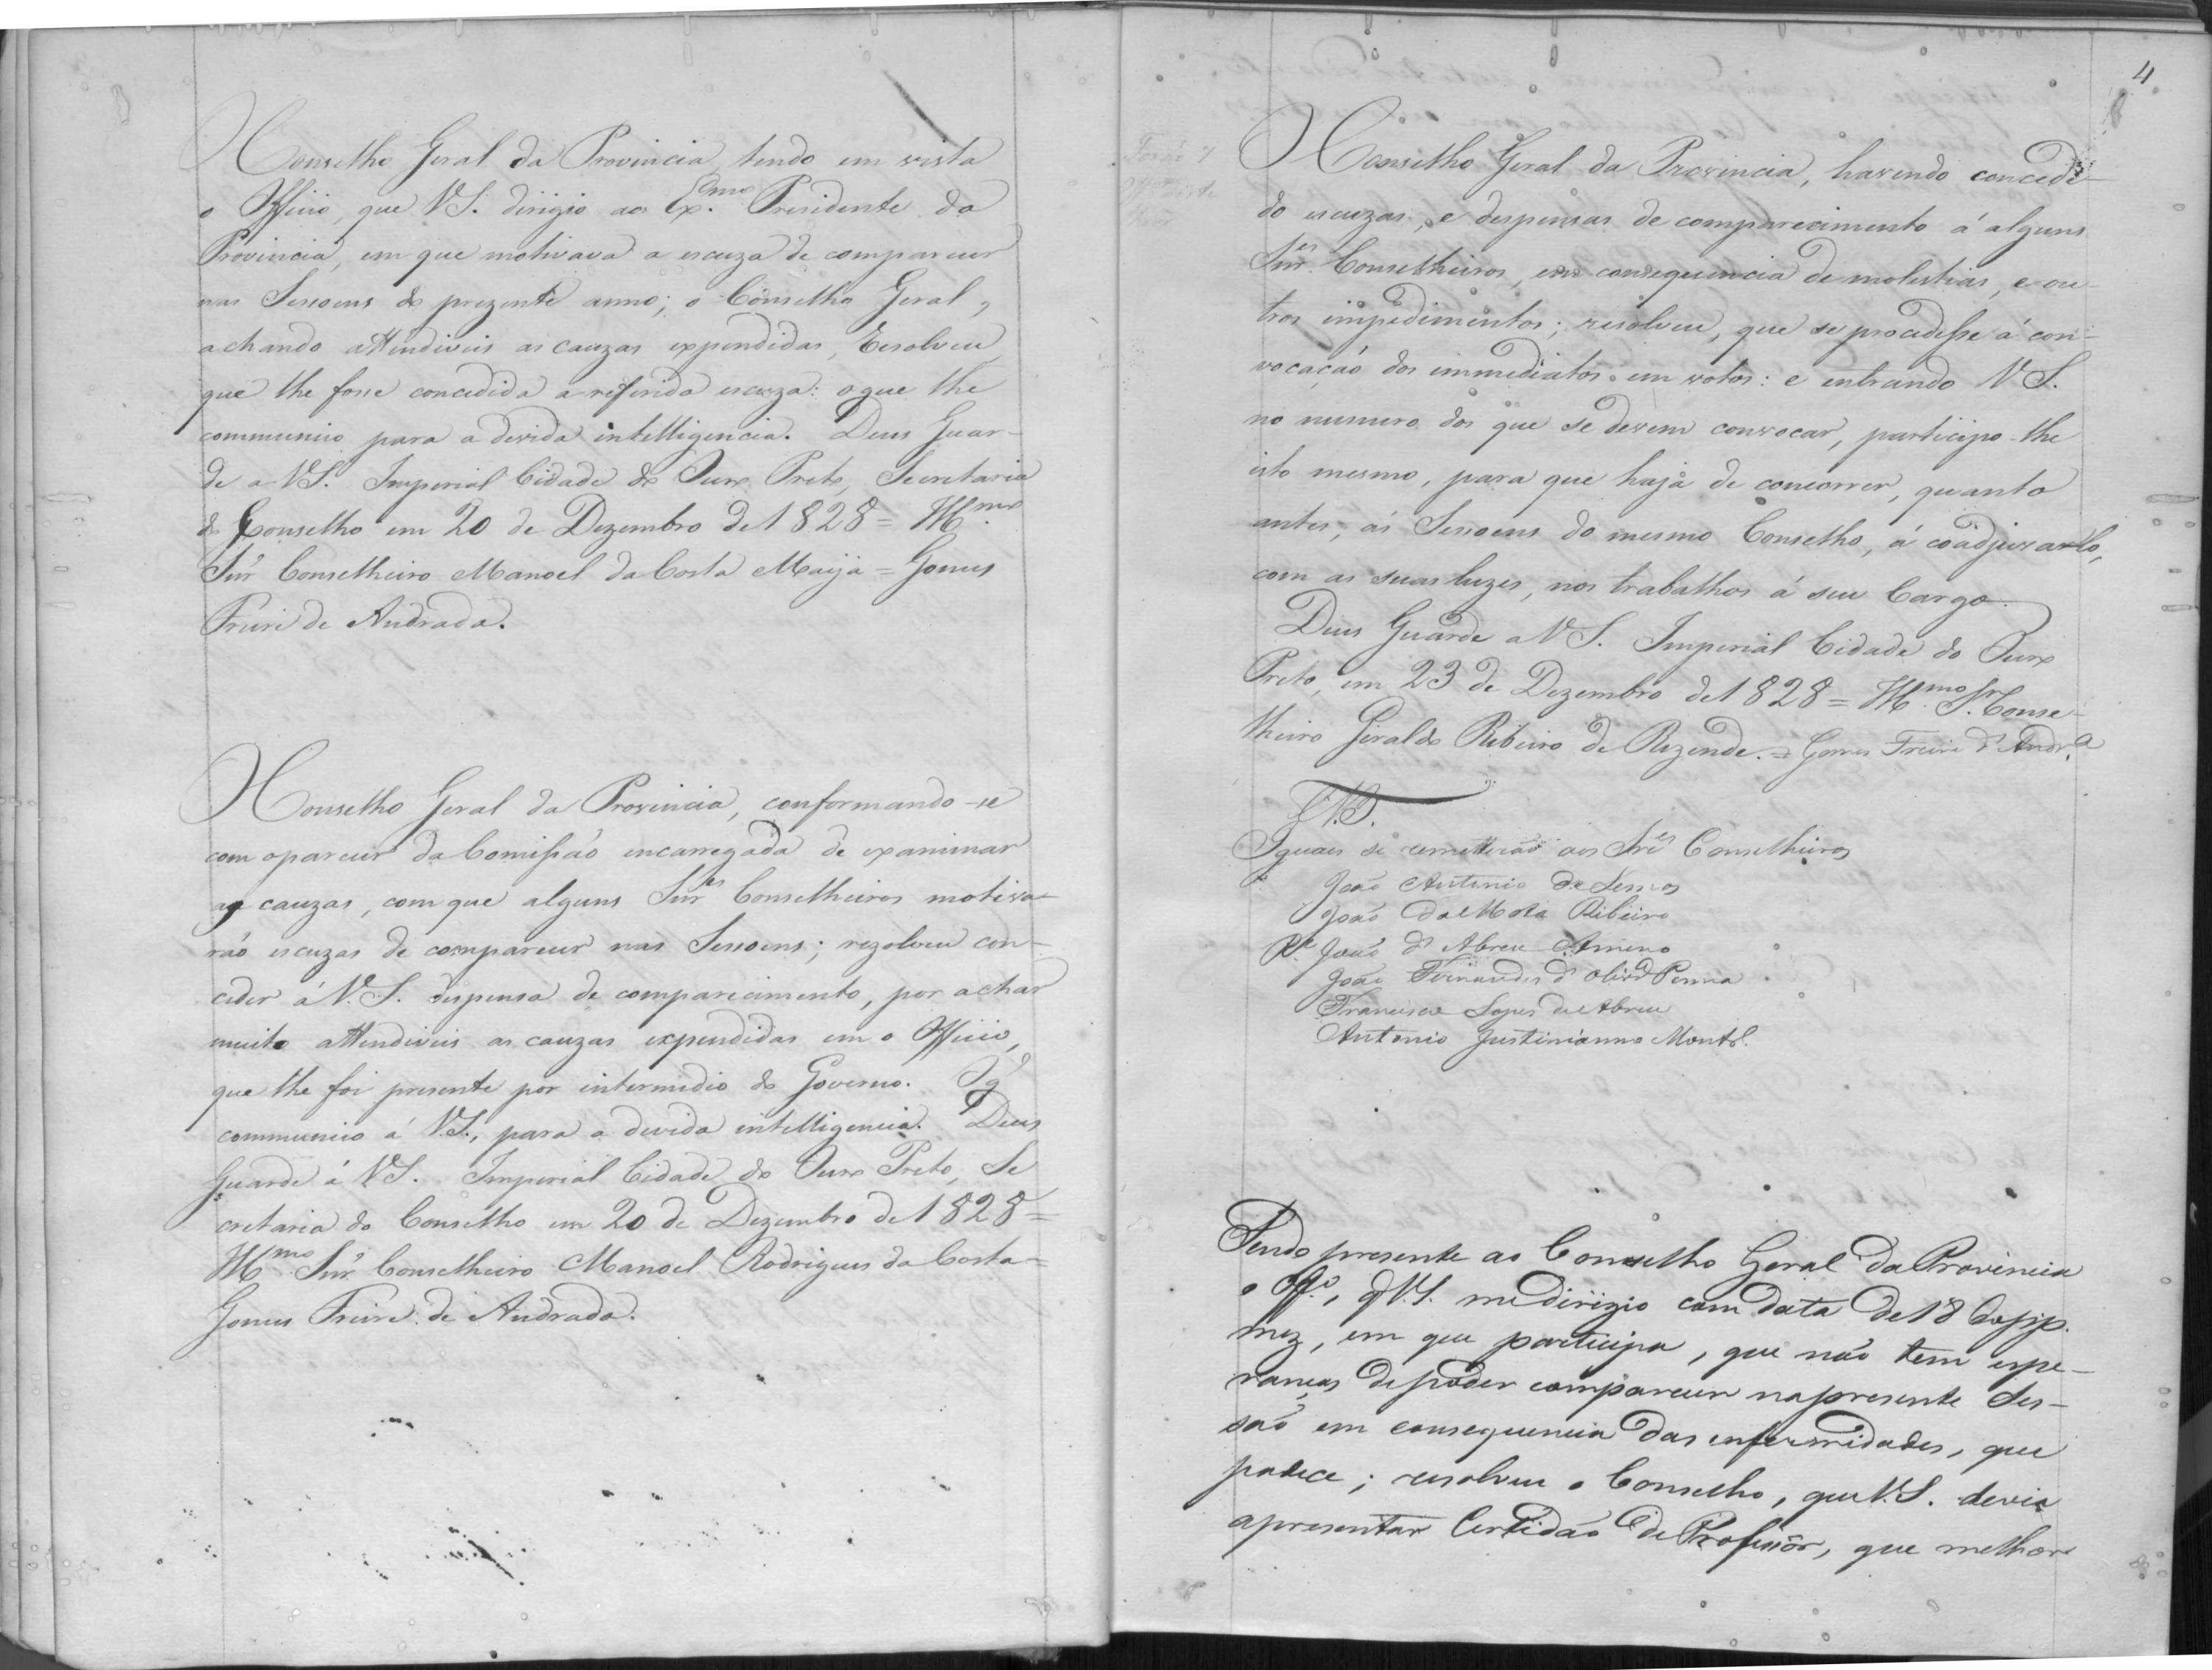 O Conselho Geral da Provincia, tendo em vista
o Officio, que V.S. dirigio ao Ex.mo Presidente da
Provincia, em que motivava a escuza de comparecer
nas Sessoens do prezente anno; o Conselho Geral,
achando attendiveis as cauzas expendidas, Resolveu,
que lhe fosse concedida a referida escuza: o que lhe
communico para a devida intelligencia. Deus Guar-
de a V.S. Imperial Cidade do Ouro Preto, Secretaria
do Conselho em 20 de Dezembro de 1828 = Ill.mo
Snr. Conselheiro Manoel da Costa Maija = Gomes
Freire de Andrada.
O Conselho Geral da Provincia, conformando-se
com o parecer da Comissaõ encarregada de examinar
as cauzas, com que alguns Snr.es Conselheiros motiva-
raõ escuzas de comparecer nas Sessoens; rezolveu con-
ceder á V.S. despensa de comparecimento, por achar
muito attendiveis as cauzas expendidas em o Officio,
que lhe foi presente por intermedio do Governo. O q'
communico á V.S., para a devida intelligencia. Deus
Guarde á V.S. Imperial Cidade do Ouro Preto, Se
cretaria do Conselho em 20 de Dezembro de 1828 =
Ill.mo Snr. Conselheiro Manoel Rodrigues da Costa =
Gomes Freire de Andrada.
4
O Conselho Geral da Provincia, havendo concedi-
do escuzas, e despensas de comparecimento á alguns
Snr.es Conselheiros, em consequencia de molestias, e ou
tros impedimentos; resolveu, que se procedesse á con-
vocaçaõ dos immediatos em votos: e entrando V.S.
no numero dos que se devem convocar, participo-lhe
isto mesmo, para que haja de concorrer, quanto
antes, ás Sessoens do mesmo Conselho, á coadjuvarlo,
com as suas luzes, nos trabalhos á seu Cargo.
Deus Guarde a V.S. Imperial Cidade do Ouro
Preto, em 23 de Dezembro de 1828 = Ill.mo Sr. Conse-
lheiro Giraldo Ribeiro de Rezende. = Gomes Freire d'Andr.a
N.B.
Iguaes se remetteraõ aos Sr.es Conselheiros
Joaõ Antonio de Lemos
Joaõ da Motta Ribeiro
P.e Joaõ d'Abreu
Joaõ Fernandes d'Oliv.a Penna
Francisco Lopes de Abreu
Antonio Justinianno Mont.o
Sendo presente ao Conselho Geral da Provincia
o Off.o, q' V.S. me dirigio com data de 18 do
mez, em que participa, que naõ tem espe-
ranças de poder comparecer na presente Ses-
saõ em consequencia das enfermidades, que
padece; resolveu o Conselho, que V.S. devia
apresentar Certidaõ de Professor, que melhor